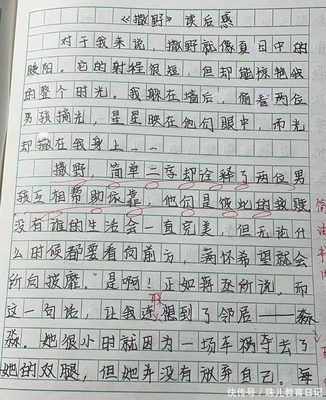 《撒野》读后感
对于我来说，撒野就像夏日中的
暖阳。它的射程很短，但却能惊艳我
的整个时光。我躲在墙后，偷看两位
男孩摘光，星星映在他们眼中，而光
却撒在我身上……
撒野，简单二字却诠释了两位男
孩互相帮助依靠，他们是彼此的救赎
没有谁的生活会一直完美，但无论什
么时候都要看向前方，满怀希望就会
所向披靡。"是啊！正如蒋丞所说，而
这一句话，让我联想到了邻居——淼
淼。她很小时就因为一场车祸夺去了
她的双腿，但她并没有放弃自己。每
快传号/珠儿教育日记